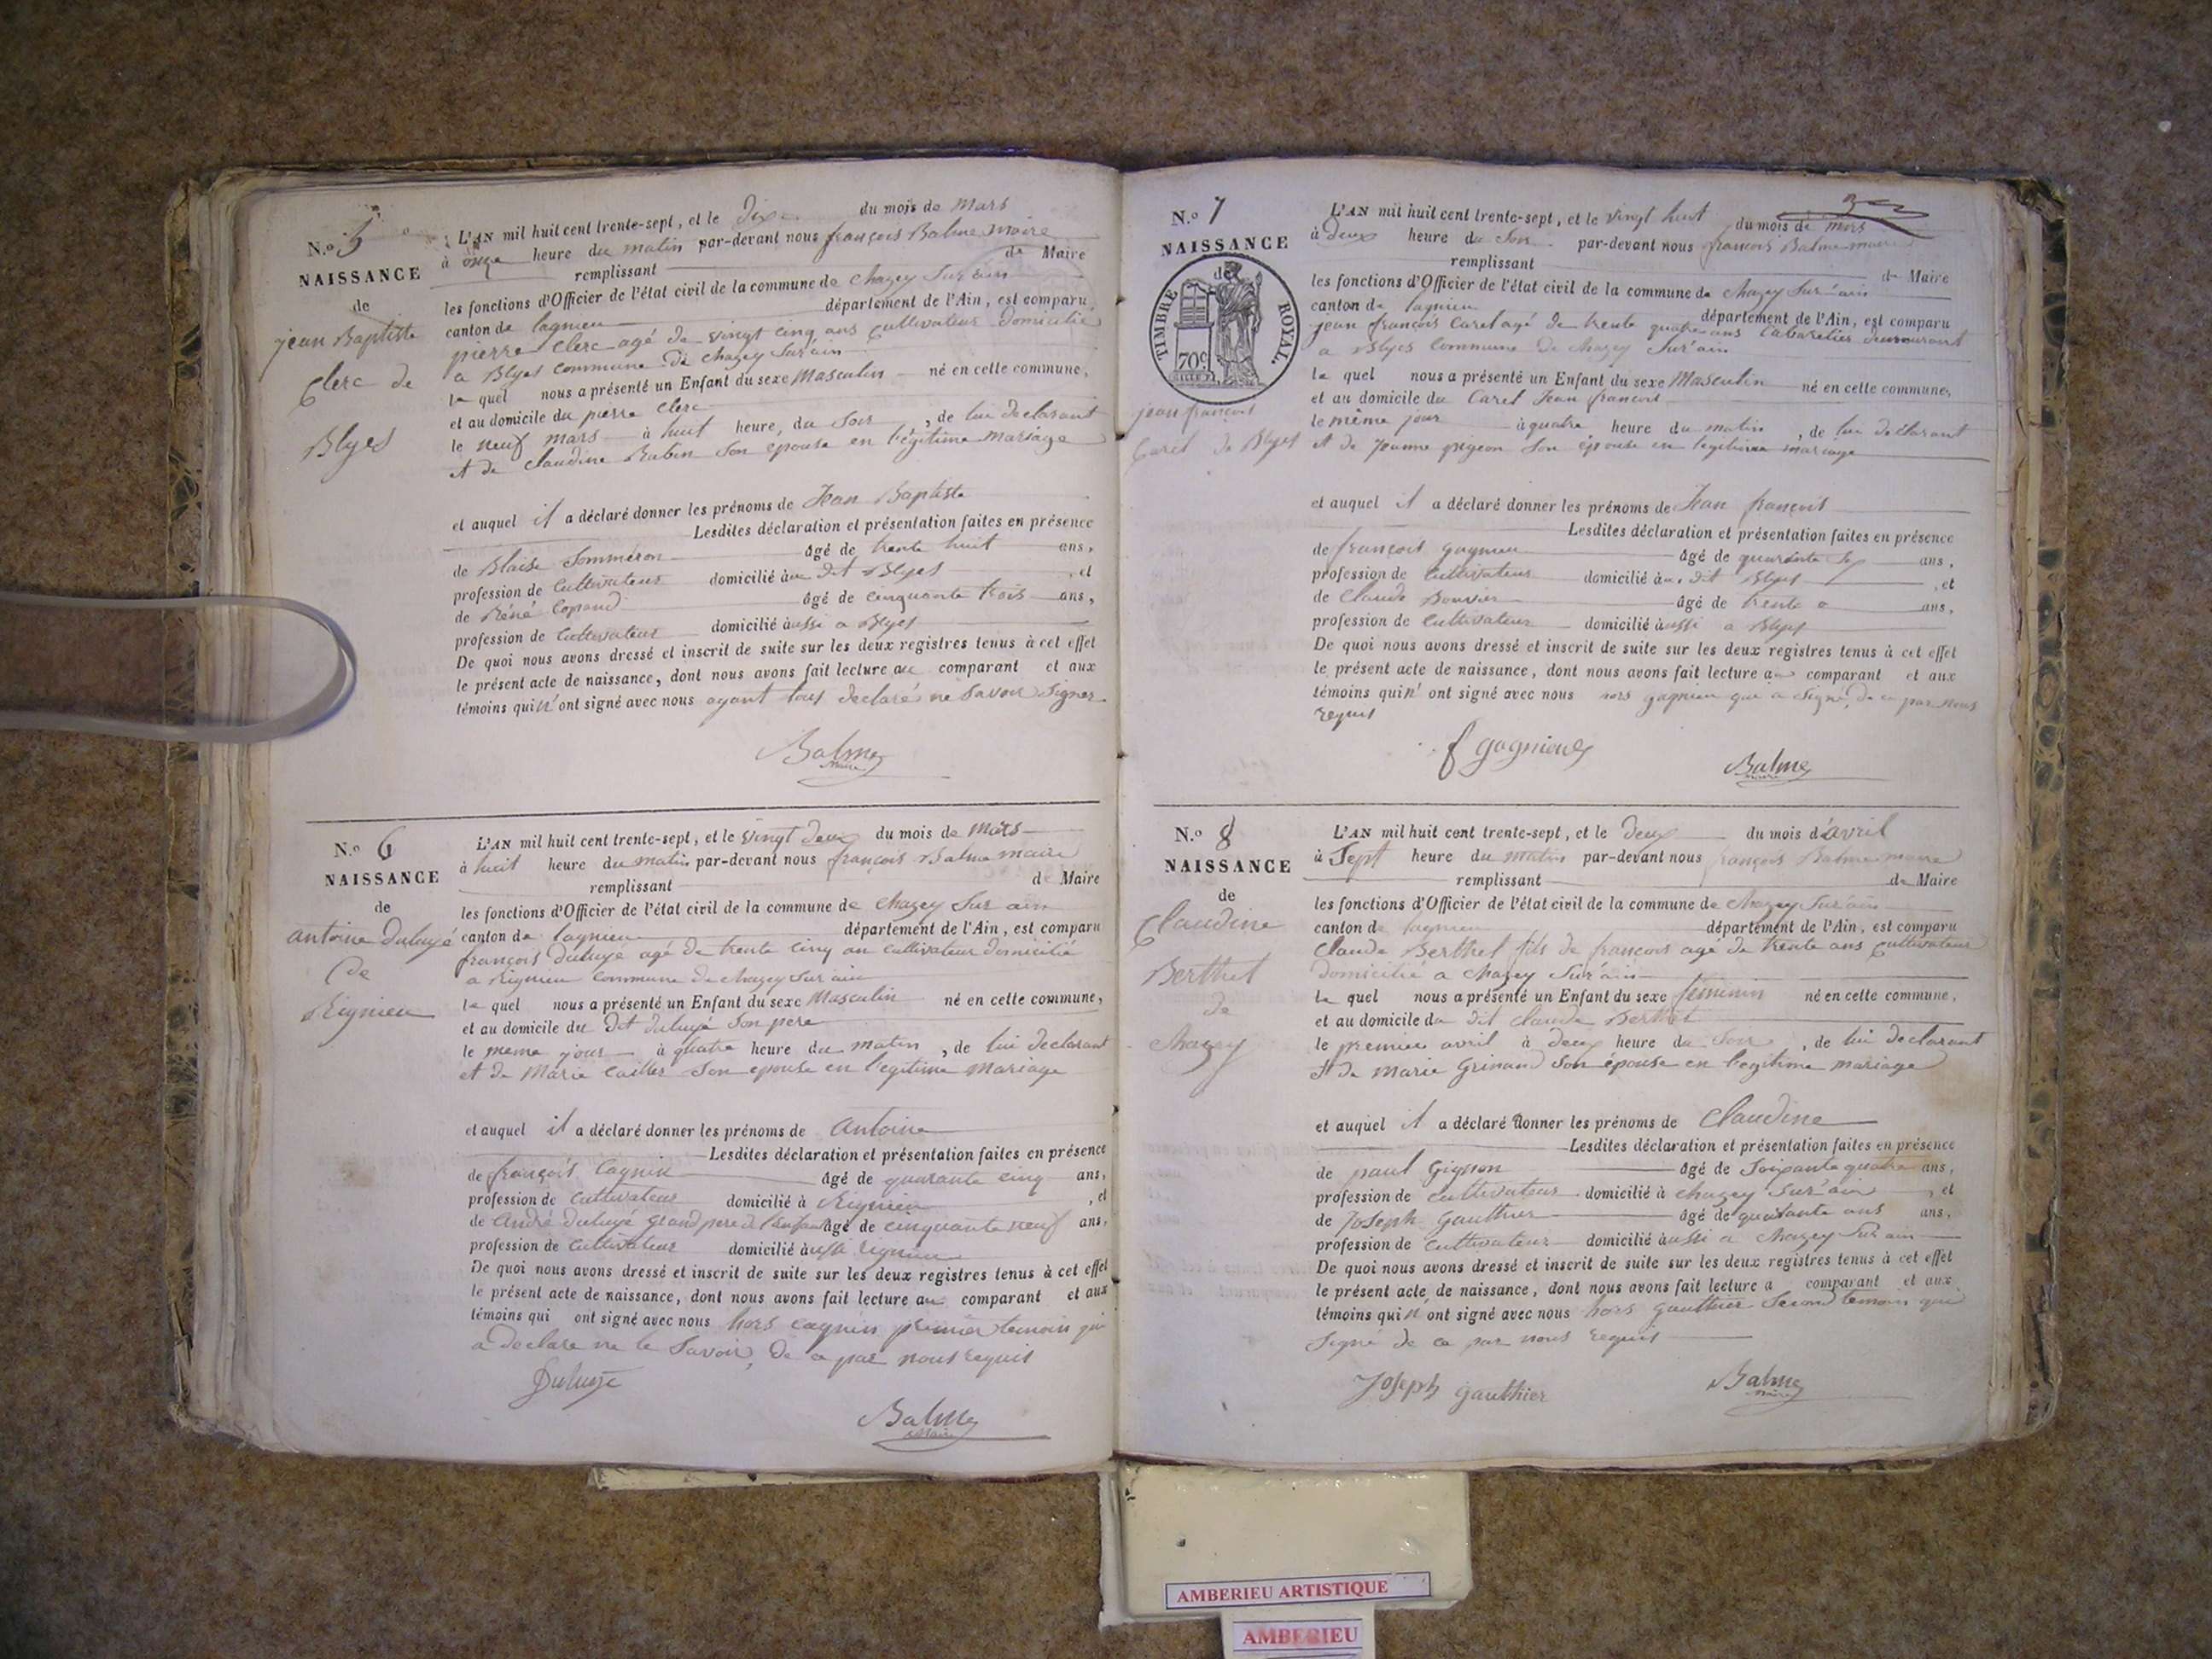 N.º 5
NAISSANCE
de
jean Baptiste
Clerc de
Blyes
L'AN mil huit cent trente-sept, et le dix du mois de mars
à onze heure du matin par-devant nous françois Balme maire
remplissant de Maire
les fonctions d'Officier de l'état civil de la commune de Chazey Sur ain
canton de lagnieu département de l'Ain, est comparu
pierre Clerc agé de vingt cinq ans Cultivateur domicilié
a Blyes commune de chazey Sur ain
le quel nous a présenté un Enfant du sexe Masculin né en cette commune,
et au domicile du pierre Clerc
le neuf mars à huit heure, du Soir, de lui declarant
et de Claudine Rubin Son épouse en légitime mariage
et auquel il a déclaré donner les prénoms de Jean Baptiste
Lesdites déclaration et présentation faites en présence
de Blaise Sommeron âgé de trente huit ans,
profession de Cultivateur domicilié au dit Blyes, et
de Réné âgé de cinquante trois ans,
profession de Cultivateur domicilié aussi a Blyes
De quoi nous avons dressé et inscrit de suite sur les deux registres tenus à cet effet
le présent acte de naissance, dont nous avons fait lecture au comparant et aux
témoins qui n'ont signé avec nous ayant tous declaré ne Savoir Signer
Balme
maire
N.º 6
NAISSANCE
de
antoine duluyé
de
Rignieu
L'AN mil huit cent trente-sept, et le vingt deux du mois de mars
à huit heure du matin par-devant nous françois Balme maire
remplissant de Maire
les fonctions d'Officier de l'état civil de la commune de Chazey Sur ain
canton de lagnieu département de l'Ain, est comparu
françois duluyé agé de trente cinq an cultivateur domicilié
a Rignieu commune de chazey Sur ain
le quel nous a présenté un Enfant du sexe Masculin né en cette commune,
et au domicile du dit duluyé Son pere
le meme jour à quatre heure du matin, de lui declarant
et de Marie Son epouse en l'egitime mariage
et auquel il a déclaré donner les prénoms de antoine
Lesdites déclaration et présentation faites en présence
de françois Cagnin âgé de quarante cinq ans,
profession de Cultivateur domicilié à Rignieu, et
de André duluyé grand pere de l'enfant âgé de cinquante neuf ans,
profession de Cultivateur domicilié aussi a rignieu
De quoi nous avons dressé et inscrit de suite sur les deux registres tenus à cet effet
le présent acte de naissance, dont nous avons fait lecture au comparant et aux
témoins qui ont signé avec nous hors Cagnin premier temoin qui
a declaré ne le Savoir, de ce par nous requis
Duluyé
Balme
maire
N.º 7
NAISSANCE
de
TIMBRE ROYAL.
70c
jean françois
Caret de Blyes
L'AN mil huit cent trente-sept, et le vingt huit du mois de mars
à deux heure du Soir par-devant nous francois Balme maire
remplissant de Maire
les fonctions d'Officier de l'état civil de la commune de chazey Sur ain
canton de lagnieu département de l'Ain, est comparu
jean françois Caret agé de trente quatre ans Cabaretier demeurant
a Blyes commune de chazey Sur ain
le quel nous a présenté un Enfant du sexe Masculin né en cette commune,
et au domicile du Caret Jean francois
le même jour à quatre heure du matin, de lui declarant
et de Jeanne pigeon Son épouse en legitime mariage
et auquel il a déclaré donner les prénoms de Jean françois
Lesdites déclaration et présentation faites en présence
de françois gagnieu âgé de quarante ans,
profession de Cultivateur domicilié au dit Blyes, et
de Claude Bouvier âgé de trente ans,
profession de Cultivateur domicilié aussi a Blyes
De quoi nous avons dressé et inscrit de suite sur les deux registres tenus à cet effet
le présent acte de naissance, dont nous avons fait lecture au comparant et aux
témoins qui n'ont signé avec nous hors gagnieu qui a Signé, de ce par nous
requis
f gagnieux
Balme
maire
N.º 8
NAISSANCE
de
Claudine
Berthet
de
Chazey
L'AN mil huit cent trente-sept, et le deux du mois d'avril
à Sept heure du matin par-devant nous françois Balme maire
remplissant de Maire
les fonctions d'Officier de l'état civil de la commune de Chazey Sur ain
canton de lagnieu département de l'Ain, est comparu
Claude Berthet fils de francois agé de trente ans Cultivateur
domicilié a chazey Sur ain
le quel nous a présenté un Enfant du sexe feminin né en cette commune,
et au domicile du dit Claude Berthet
le premier avril à deux heure du Soir, de lui declarant
et de marie Grinand Son épouse en legitime mariage
et auquel il a déclaré donner les prénoms de Claudine
Lesdites déclaration et présentation faites en présence
de paul Gignon âgé de Soixante quatre ans,
profession de Cultivateur domicilié à chazey Sur ain, et
de Joseph Gauthier âgé de quarante ans ans,
profession de Cultivateur domicilié aussi a Chazey Sur ain
De quoi nous avons dressé et inscrit de suite sur les deux registres tenus à cet effet
le présent acte de naissance, dont nous avons fait lecture a comparant et aux
témoins qui n'ont signé avec nous hors Gauthier Second temoin qui
Signé de ce par nous requis
Joseph gauthier
Balme
maire
AMBERIEU ARTISTIQUE
AMBERIEU